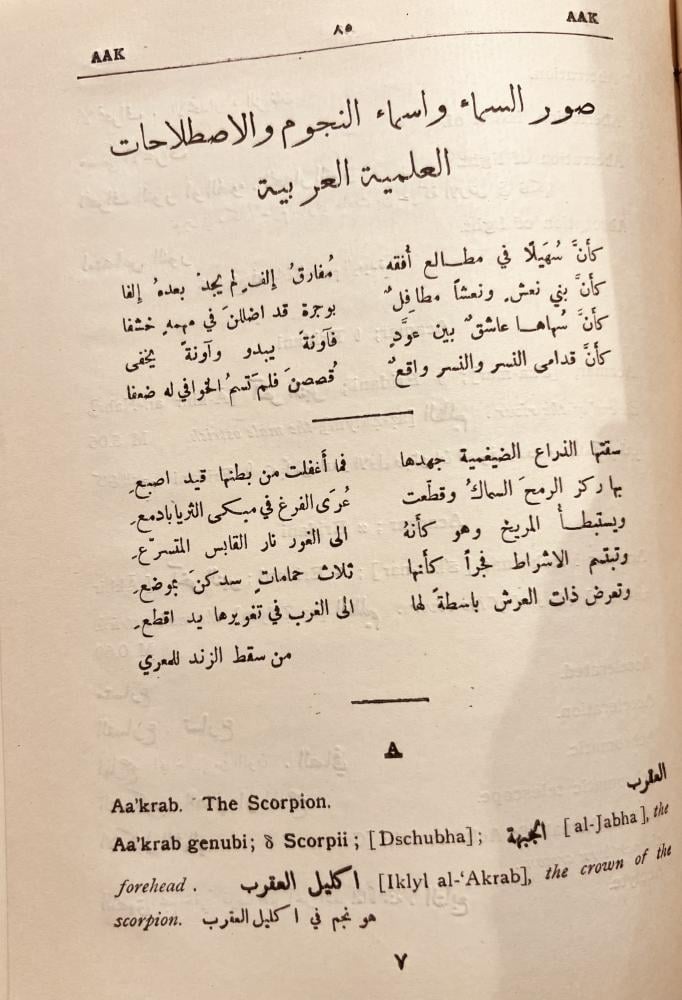 AAK ٨٥ AAK
صور السماء واسماء النجوم والاصطلاحات
العلمية العربية
كأنَّ سُهَيلًا في مطالع أفقه مُفارقُ إلفٍ لم يجدْ بعدهُ إلفا
كأنَّ بني نعشٍ ونعشاً مطافِلٌ بوجرة قد اضللنَ في مهمهٍ خشفا
كأنَّ سُهاها عاشقٌ بين عوَّدٍ فآونةً يبدو وآونةً يخفى
كأنَّ قدامى النسر والنسر واقعٌ قُصصنَ فلم تسمُ الخوافي له ضعفا
سقتها الذراع الضيغمية جهدها فما أغفلت من بطنها قيد اصبعِ
بها ركز الرمحَ السماكُ وقطّعت عُرَى الفرغ في مبكى الثريا بادمعِ
ويستبطأُ المريخ وهو كأنهُ الى الغور نار القابس المتسرّعِ
وتبتسم الاشراط فجراً كأنها ثلاث حماماتٍ سدكنَ بموضعِ
وتعرض ذات العرش باسطةً لها الى الغرب في تغويرها يد اقطعِ
من سقط الزند للمعري
A
Aa'krab. The Scorpion. العقرب
Aa'krab genubi; δ Scorpii; [Dschubha]; الجبهة [al-Jabha], the
forehead. اكليل العقرب [Iklyl al-‘Akrab], the crown of the
scorpion. هو نجم في اكليل العقرب
٧